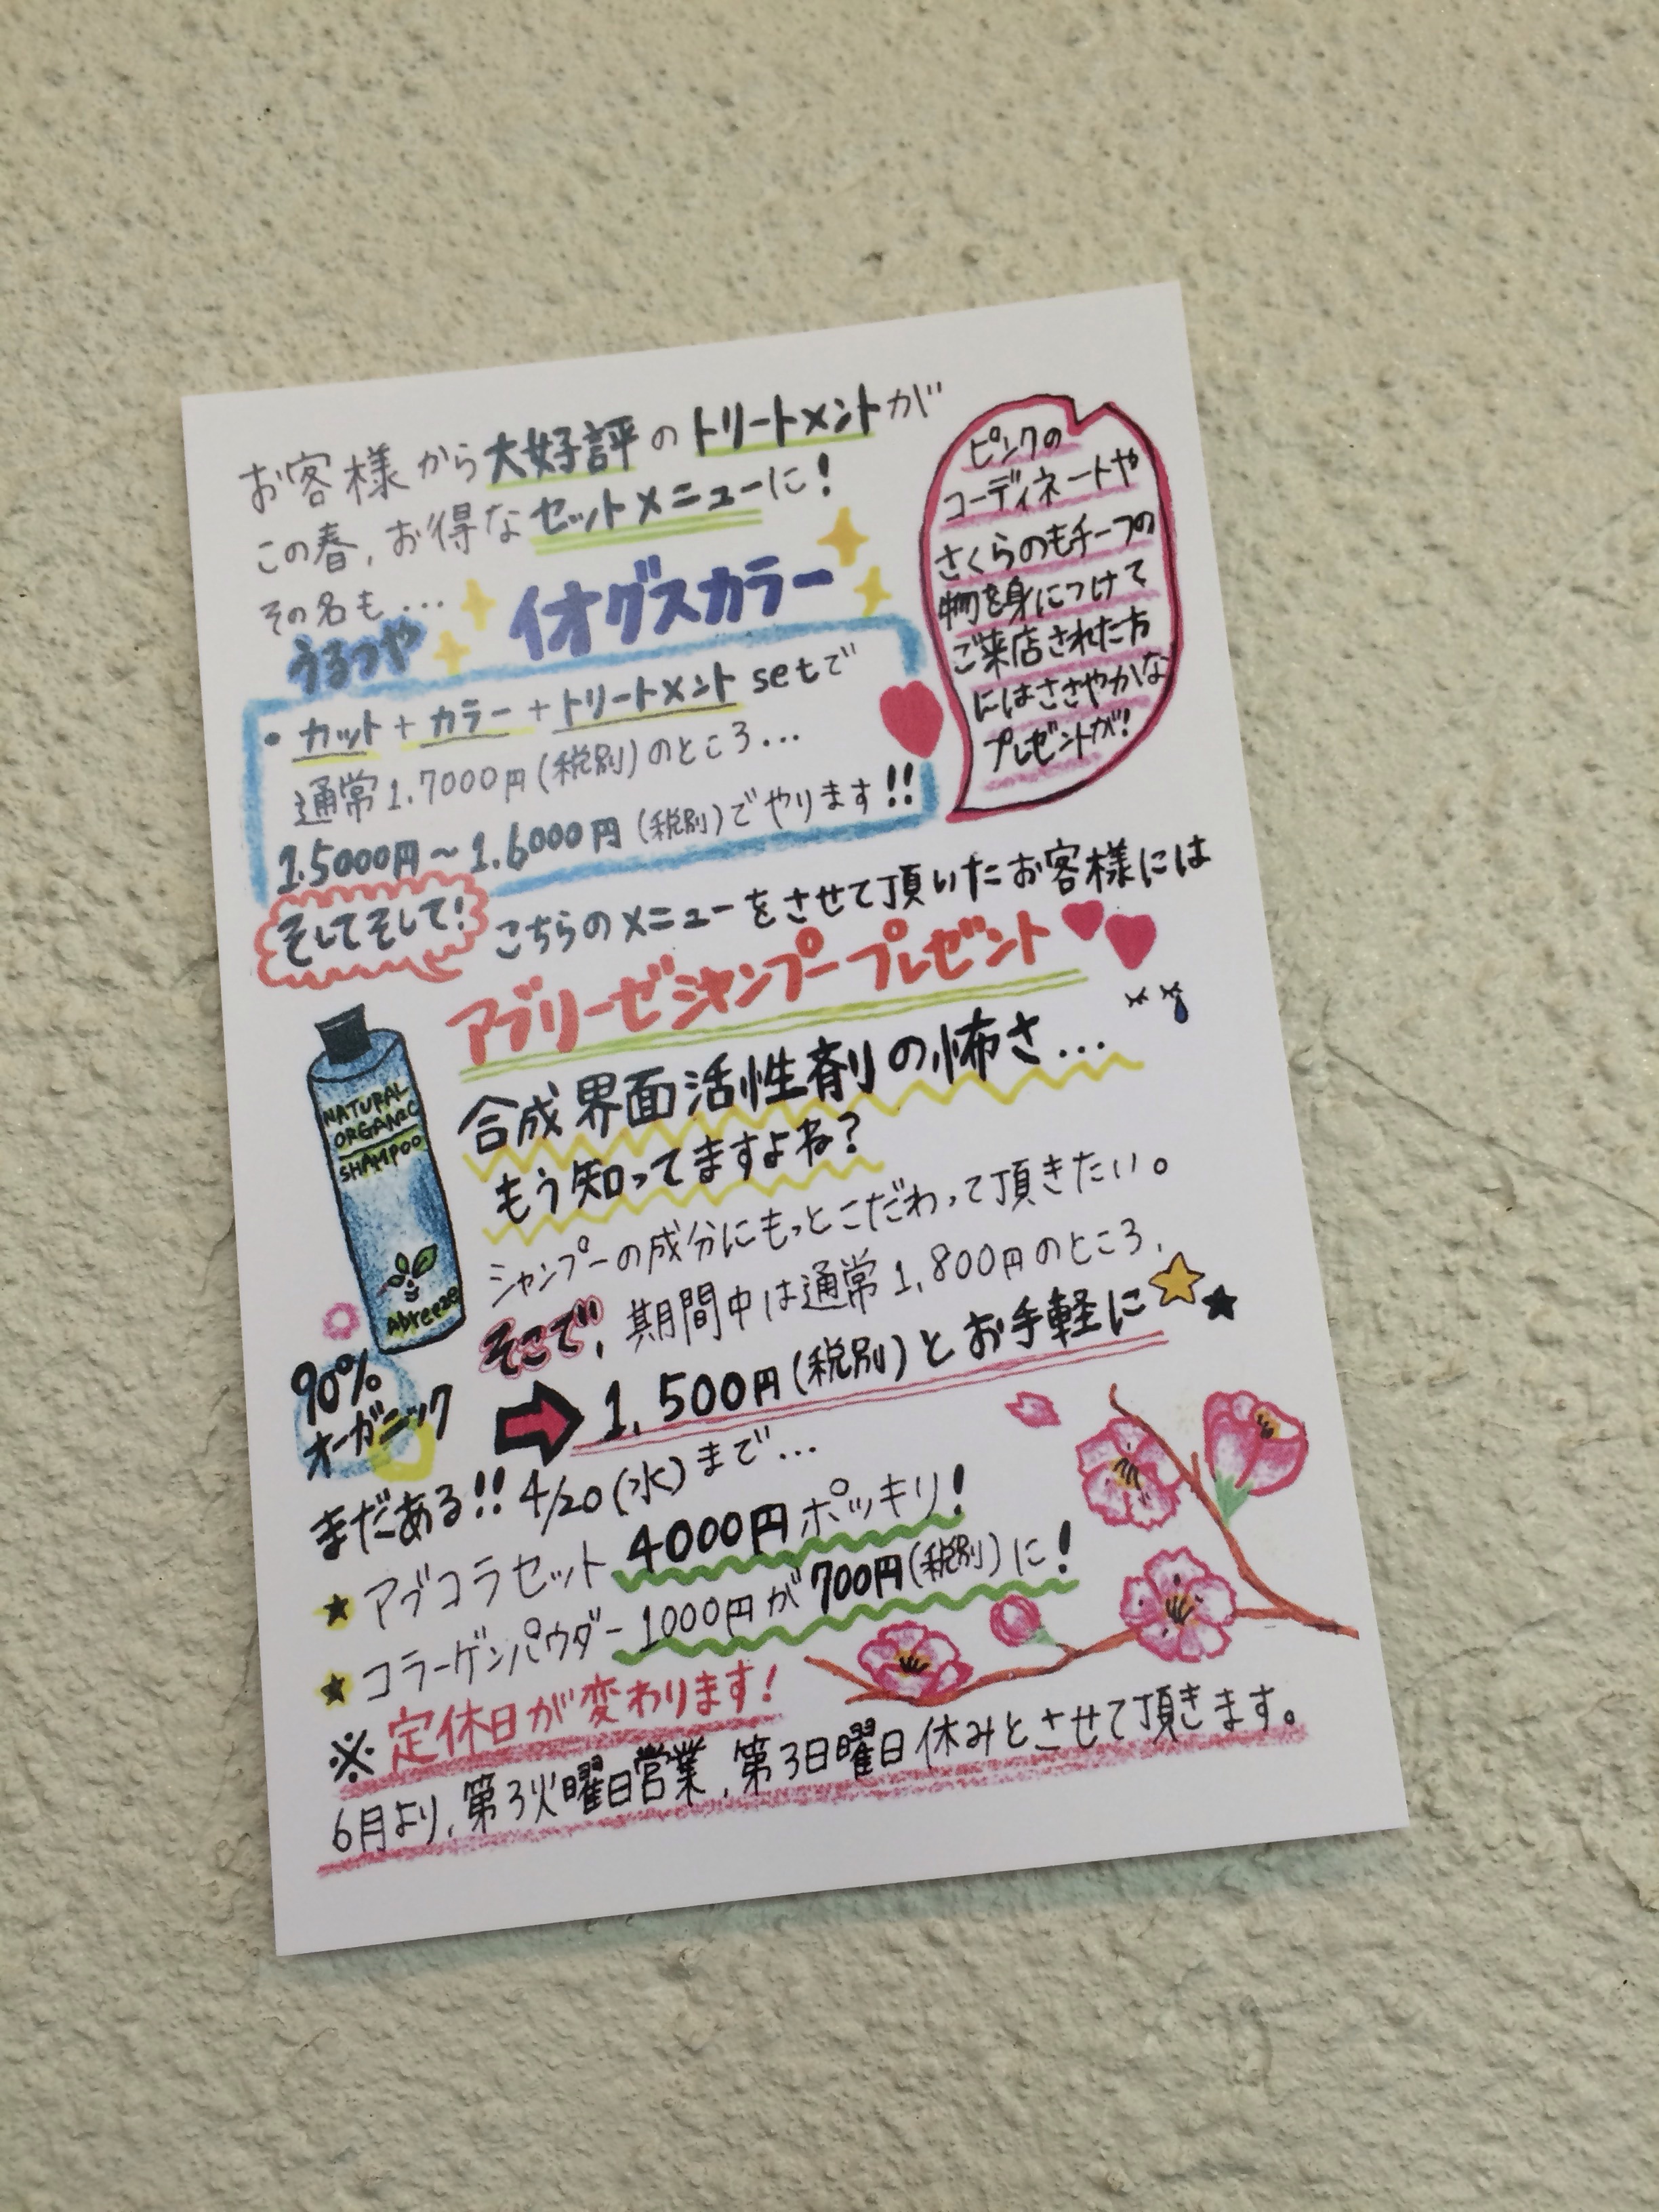 お客様から大好評のトリートメントが
この春,お得なセットメニューに!
その名も...
うるつや イオグスカラー
・カット+カラー+トリートメント setで
通常1.7000円(税別)のところ...
1.5000円~1.6000円(税別)でやります!!
ピンクの
コーディネートや
さくらのモチーフの
物を身につけて
ご来店された方
にはささやかな
プレゼントが!
そしてそして! こちらのメニューをさせて頂いたお客様には
アブリーゼシャンプープレゼント
合成界面活性剤の怖さ...
もう知ってますよね?
シャンプーの成分にもっとこだわって頂きたい。
そこで,期間中は通常1,800円のところ,
1,500円(税別)とお手軽に
NATURAL
ORGANIC
SHAMPOO
Abreeze
90%
オーガニック
まだある!! 4/20(水)まで...
★アブコラセット 4000円ポッキリ!
★コラーゲンパウダー 1000円が700円(税別)に!
※定休日が変わります!
6月より,第3火曜日営業,第3日曜日休みとさせて頂きます。